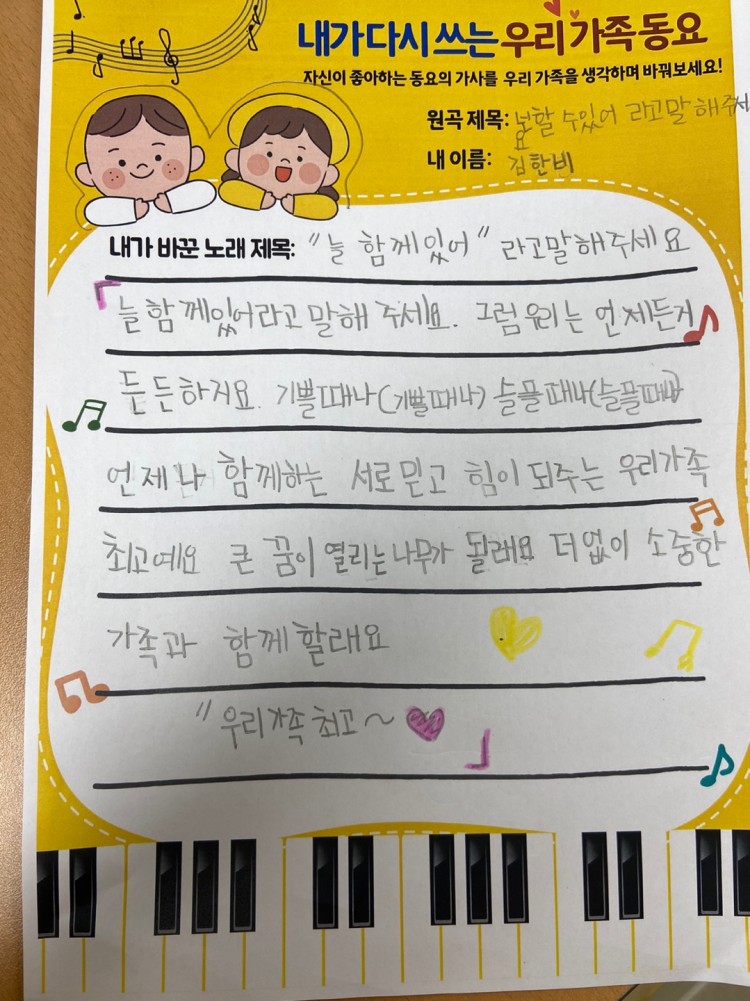 내가 다시 쓰는 우리 가족 동요
자신이 좋아하는 동요의 가사를 우리 가족을 생각하며 바꿔보세요!
원곡 제목: 넌할 수있어 라고말 해주세
요
내 이름: 김한비
내가 바꾼 노래 제목: "늘 함께있어" 라고말해주세요
「늘함께있어라고 말해 주세요. 그럼 우리는 언제든거
든든하지요. 기쁠때나(기쁠때나) 슬플때나(슬플때나)
언제나 함께하는 서로 믿고 힘이 되주는 우리가족
최고예요 큰 꿈이 열리는나무가 될래요 더없이 소중한
가족과 함께할래요
"우리가족최고~ 」